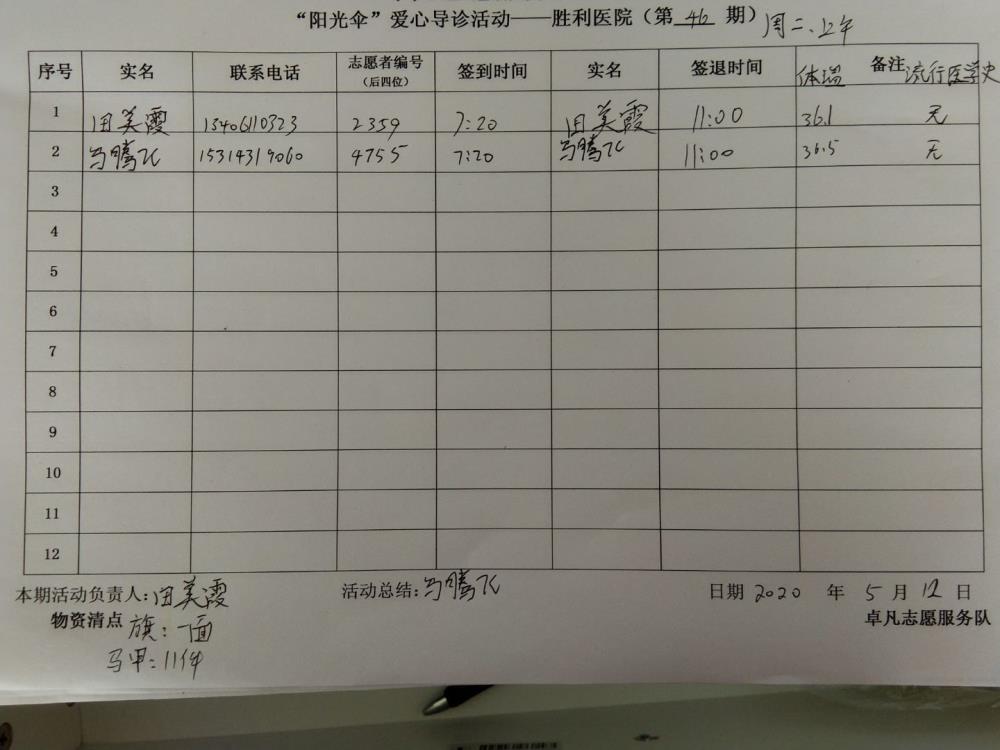 “阳光伞”爱心导诊活动——胜利医院（第 46 期）周二、上午
序号 实名 联系电话 志愿者编号（后四位） 签到时间 实名 签退时间 体温 备注 流行医学史
1 田美霞 13406110323 2359 7:20 田美霞 11:00 36.1 无
2 马腾飞 15314319060 4755 7:20 马腾飞 11:00 36.5 无
3
4
5
6
7
8
9
10
11
12
本期活动负责人：田美霞 活动总结：马腾飞 日期 2020 年 5 月 12 日
物资清点 旗：一面 卓凡志愿服务队
马甲：11件